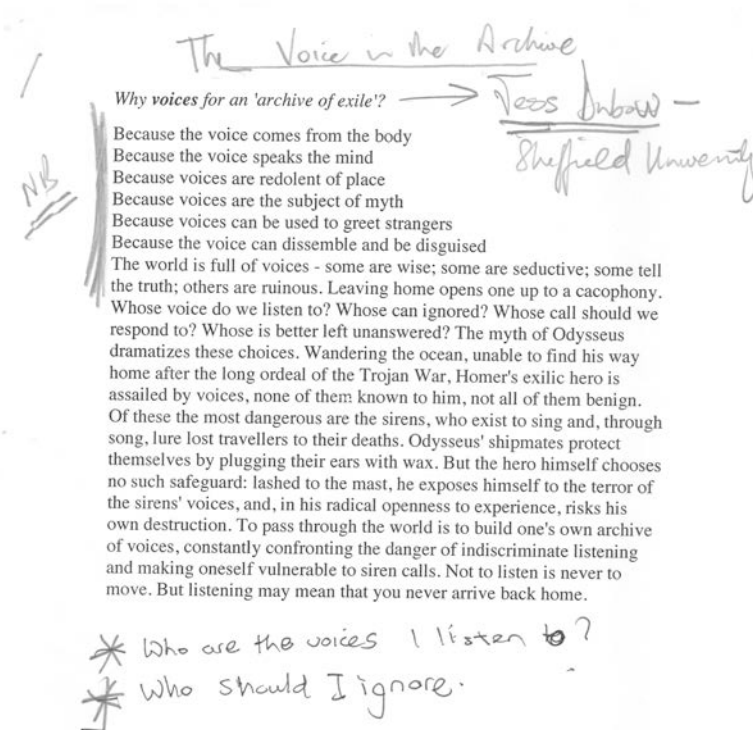 The Voice in the Archive
Why voices for an 'archive of exile'?
Jess Dubow —
Sheffield University
NB
Because the voice comes from the body
Because the voice speaks the mind
Because voices are redolent of place
Because voices are the subject of myth
Because voices can be used to greet strangers
Because the voice can dissemble and be disguised
The world is full of voices - some are wise; some are seductive; some tell
the truth; others are ruinous. Leaving home opens one up to a cacophony.
Whose voice do we listen to? Whose can ignored? Whose call should we
respond to? Whose is better left unanswered? The myth of Odysseus
dramatizes these choices. Wandering the ocean, unable to find his way
home after the long ordeal of the Trojan War, Homer's exilic hero is
assailed by voices, none of them known to him, not all of them benign.
Of these the most dangerous are the sirens, who exist to sing and, through
song, lure lost travellers to their deaths. Odysseus' shipmates protect
themselves by plugging their ears with wax. But the hero himself chooses
no such safeguard: lashed to the mast, he exposes himself to the terror of
the sirens' voices, and, in his radical openness to experience, risks his
own destruction. To pass through the world is to build one's own archive
of voices, constantly confronting the danger of indiscriminate listening
and making oneself vulnerable to siren calls. Not to listen is never to
move. But listening may mean that you never arrive back home.
* Who are the voices I listen to?
* Who should I ignore.